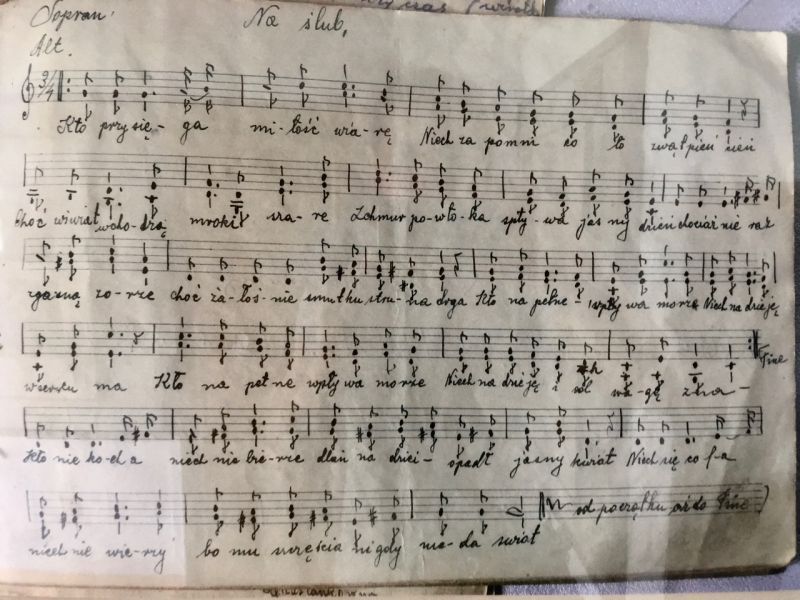 Sopran. Na ślub,
Alt.
Kto przysię - ga mi - łość wia - rę Niech zapomni co to zwątpień cień
Choć wiwiat wcho - dzą mroki sza - re Z chmur po - wło - ka spły - wa jas ny dzień chociaż nie raz
zgasną zo - rze choć ża - łoś - nie smutku stru - na drga Kto na pełne - wpływa morze Niech nadzieję
w sercu ma Kto na peł ne wpły wa morze Niech nadzieję i od wa - gę zna -
Fine
Kto nie ko - cha niech nie bie - rze dlań na dziei - opadł jasny kwiat Niech się co fa
niech nie wie - rzy bo mu szczęścia ni gdy nie - da świat od początku aż do Fine